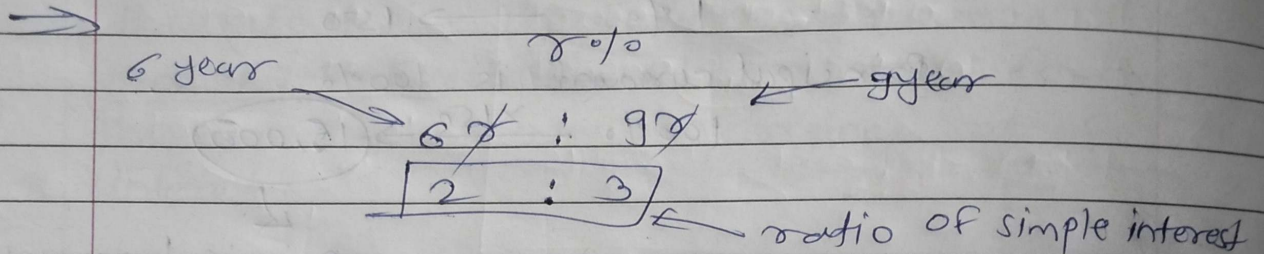 r%
6 year 9year
6r : 9r
2 : 3
ratio of simple interest